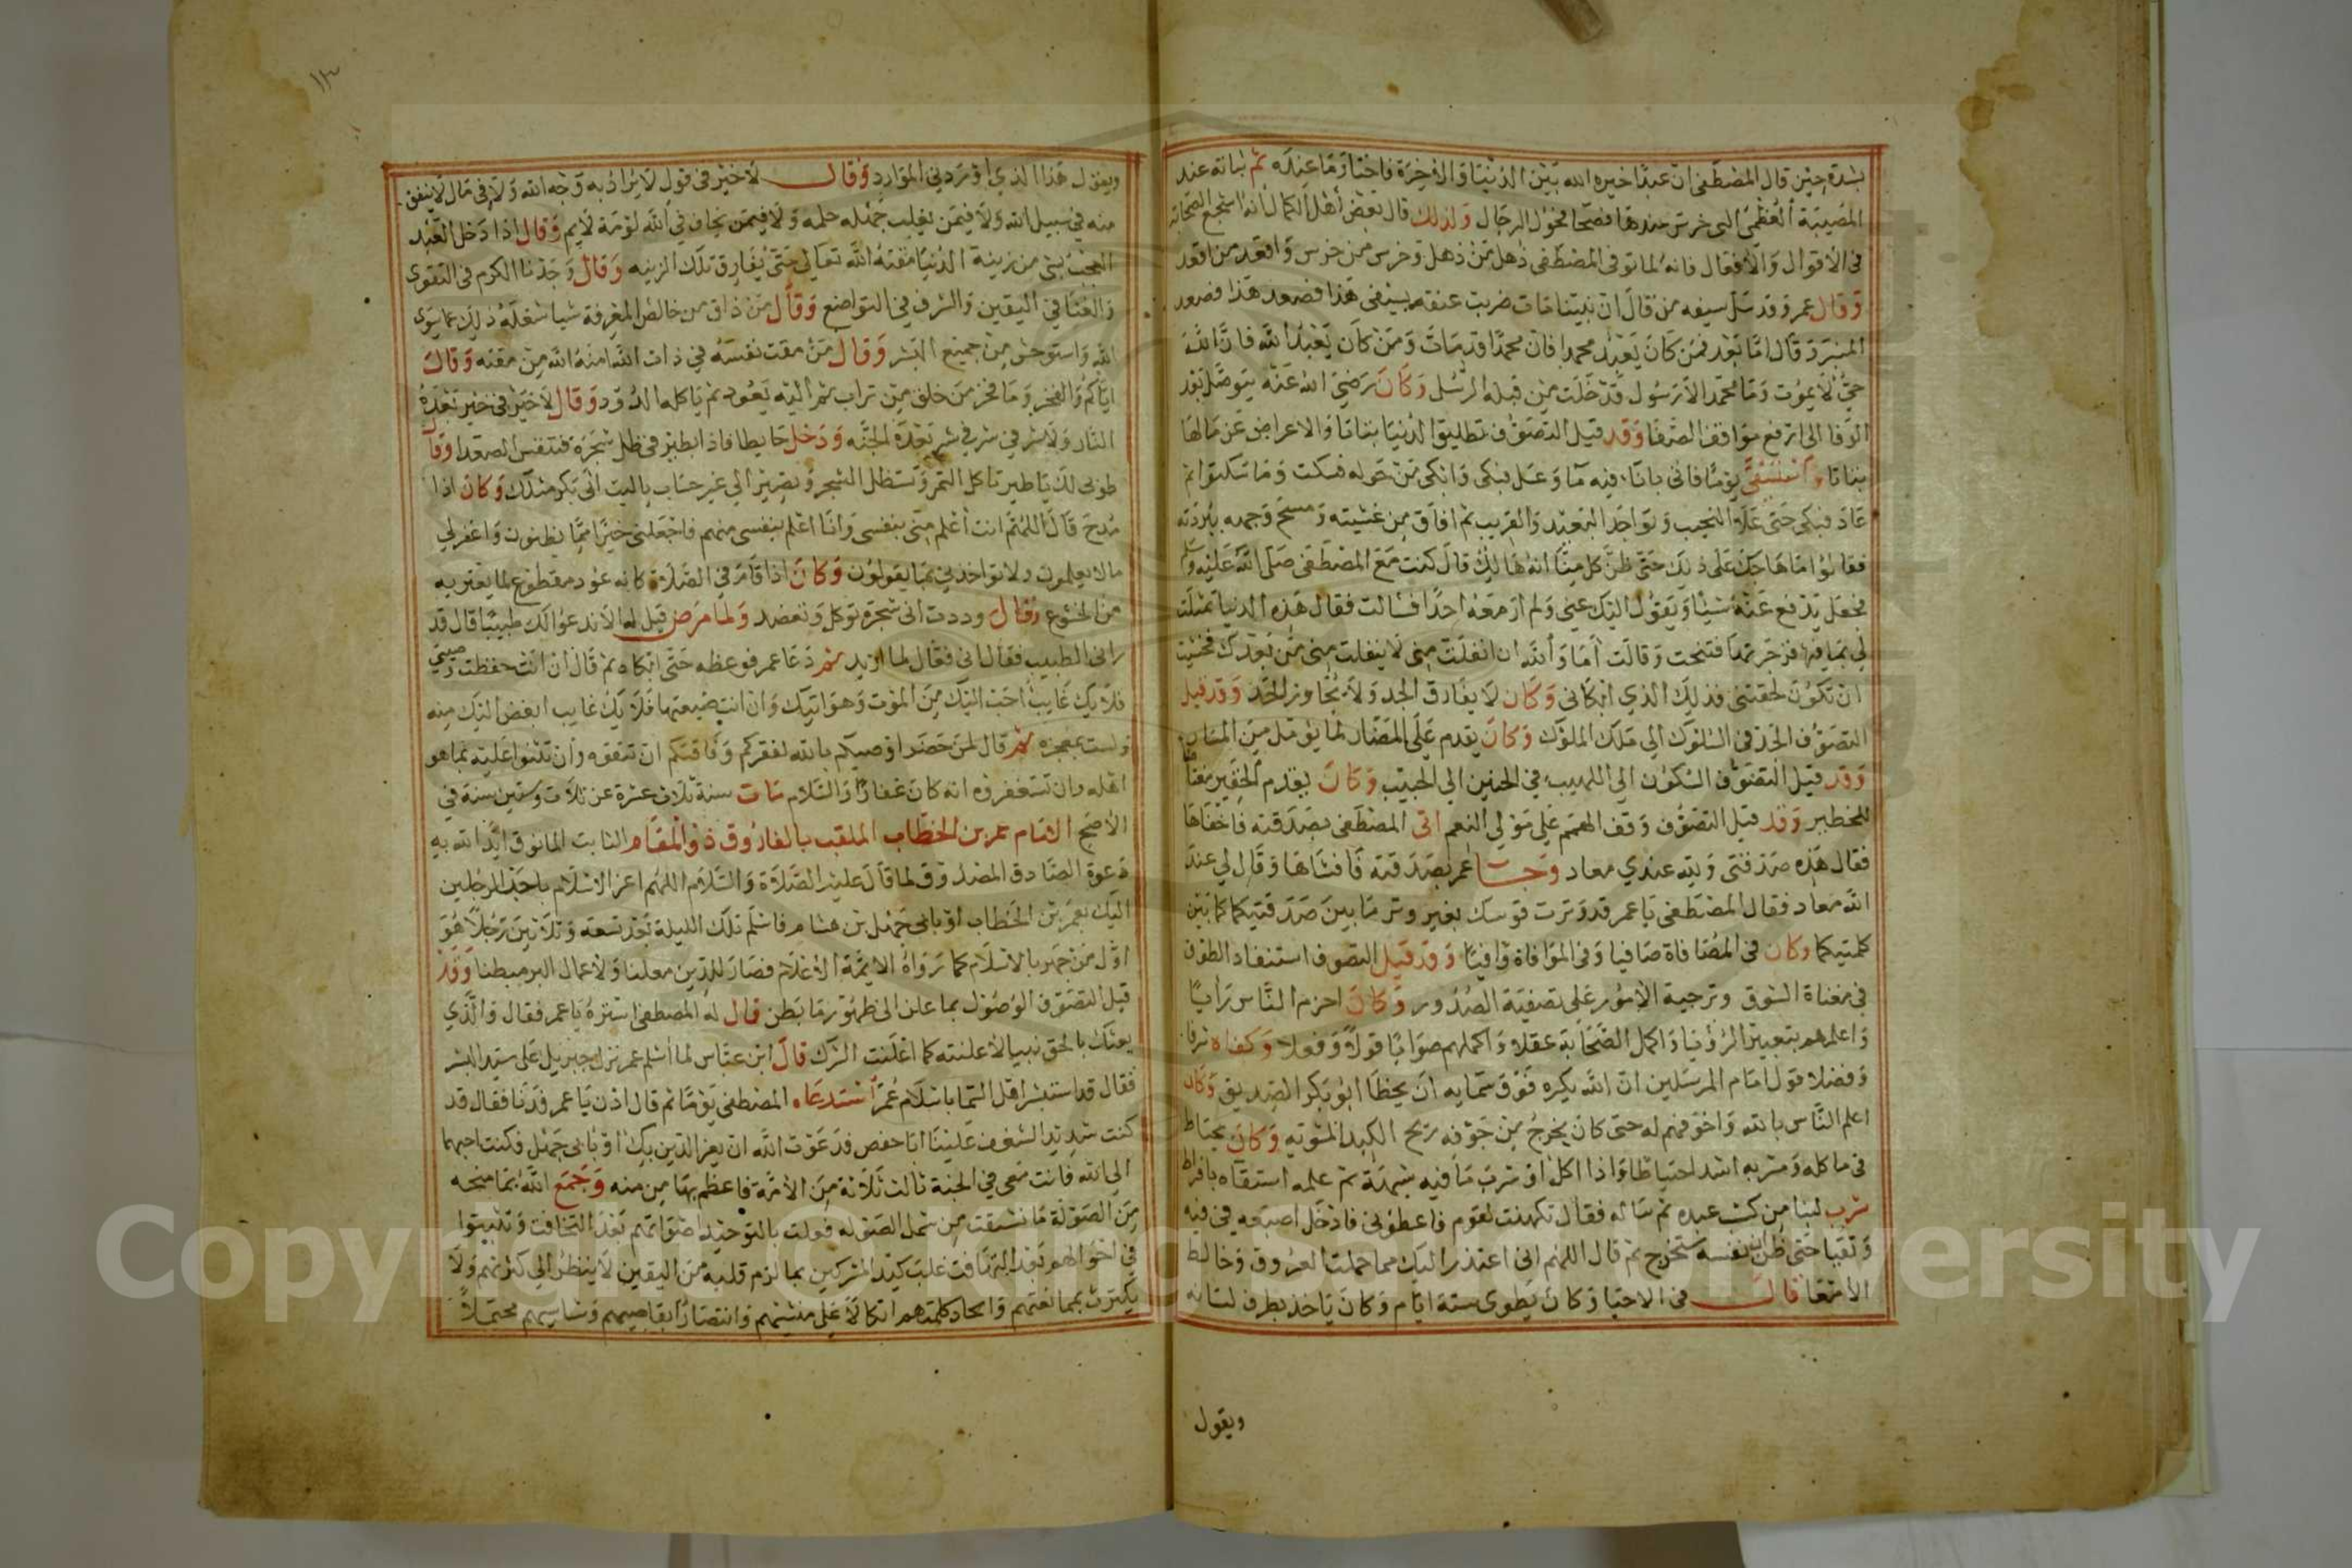 بشدة حين قال المصطفى ان عبدا خيره الله بين الدنيا والاخرة فاختار ما عنده ثم ثباته عند
المصيبة العظمى التى خرس عندها فصحا فحول الرجال ولذلك قال بعض أهل الكمال انه استجمع الصحابة
فى الاقوال والافعال فانه لما توفى المصطفى ذهل من ذهل وخرس من خرس واقعد من اقعد
وقال عمر وقد سل سيفه من قال ان نبينا مات ضربت عنقه بسيفى هذا فصعد هذا فصعد
المنبر وقال اما بعد فمن كان يعبد محمدا فان محمدا قد مات ومن كان يعبد الله فان الله
حي لا يموت وما محمد الا رسول قد خلت من قبله الرسل وكان رضي الله عنه يتوصل بعز
الوفا الى ارفع مواقف الصفا وقد قيل التصوف تطليق الدنيا بتاتا والاعراض عن منالها
بتاتا واستسقى يوما فاتى باناء فيه ما وعسل فبكى وابكى من حوله فسكت وما سكتوا ثم
عاد فبكى حتى علا النحيب وتواجد البعيد والقريب ثم افاق من غشيته ومسح وجهه ببردته
فقالوا ما هاجك على ذلك حتى ظن كل منا انه هالك قال كنت مع المصطفى صلى الله عليه وسلم
فجعل يدفع عنه شيئا ويقول اليك عني ولم ار معه احدا فسالت فقال هذه الدنيا تمثلت
لي بما فيها فزجرتها فتنحت وقالت أما والله ان انفلت مني لا ينفلت مني من بعدك فخشيت
ان تكون لحقتنى فذلك الذي ابكانى وكان لا يفارق الجد ولا يجاوز الحد وقد قيل
التصوف الجد فى السلوك الى ملك الملوك وكان يقدم على المضار لما يؤمل من المسار
وقد قيل التصوف السكون الى اللهيب في الحنين الى الحبيب وكان يقدم الحقير مغتما
للخطير وقد قيل التصوف وقف الهمم على مولي النعم اتى المصطفى بصدقته فاخفاها
فقال هذه صدقتى ولله عندي معاد وجا عمر بصدقته فافشاها وقال لي عند
الله معاد فقال المصطفى يا عمر قد وترت قوسك بغير وتر ما بين صدقتيكما كما بين
كلمتيكما وكان في المصافاة صافيا وفى الموافاة وافيا وقد قيل التصوف استنفاد الطوق
في معناة الشوق وترجية الامور على تصفية الصدور وكان احزم الناس رأيا
واعلمهم بتعبير الرؤيا واكمل الصحابة عقلا واكملهم صوابا قولا وفعلا وكفاه شرفا
وفضلا قول امام المرسلين ان الله يكره فوق سمايه ان يخطأ ابو بكر الصديق وكان
اعلم الناس بالله واخوفهم له حتى كان يخرج من جوفه ريح الكبد المشوية وكان يحتاط
فى ماكله ومشربه اشد احتياطا واذا اكل او شرب ما فيه شبهة ثم علمه استقاه بافراط
شرب لبنا من كسب عبده ثم ساله فقال تكهنت لقوم فاعطوني فادخل اصبعه في فيه
وتقيا حتى ظن ان نفسه ستخرج ثم قال اللهم انى اعتذر اليك مما حملت العروق وخالط
الأمعا قال فى الاحيا وكان يطوى ستة ايام وكان ياخذ بطرف لسانه
ويقول
١٣
ويقول هذا الذي اوردني الموارد وقال لا خير فى قول لا يراد به وجه الله ولا فى مال لا ينفق
منه في سبيل الله ولا فيمن يغلب جهله حلمه ولا فيمن يخاف في الله لومة لايم وقال اذا دخل العبد
العجب بشي من زينة الدنيا مقته الله تعالى حتى يفارق تلك الزينه وقال وجدنا الكرم فى التقوى
والغنا في اليقين والشرف في التواضع وقال من ذاق من خالص المعرفة شيا شغله ذلك عما سوى
الله واستوحش من جميع البشر وقال من مقت نفسه في ذات الله امنه الله من مقته وقال
اياكم والفخر وما فخر من خلق من تراب ثم اليه يعود ثم ياكله الدود وقال لا خير في خير بعده
النار ولا شر في شر بعده الجنه ودخل حايطا فاذا بطير فى ظل شجرة فتنفس الصعدا وقال
طوبى لك يا طير تاكل الثمر وتستظل الشجر وتصير الى غير حساب يا ليت ابى بكر مثلك وكان اذا
مدح قال اللهم انت أعلم مني بنفسي وانا اعلم بنفسى منهم فاجعلنى خيرا مما يظنون واغفر لي
ما لا يعلمون ولا تواخذني بما يقولون وكان اذا قام في الصلاة كانه عود مقطوع لما يعتريه
من الخشوع وقال وددت انى شجرة توكل وتعضد ولما مرض قيل له الا ندعوا لك طبيبا قال قد
رانى الطبيب فقال انى فعال لما اريد ثم دعا عمر فوعظه حتى ابكاه ثم قال ان انت حفظت وصيتي
فلا يك غايب احب اليك من الموت وهو اتيك وان انت ضيعتها فلا يك غايب ابغض اليك منه
ولست بمعجزه ثم قال لمن حضر اوصيكم بالله لفقركم وفاقتكم ان تتقوه وأن تثنوا عليه بما هو
اهله وان تستغفروه انه كان غفارا والسلام مات سنة ثلاث عشرة عن ثلاث وستين سنة في
الأصح الامام عمر بن الخطاب الملقب بالفاروق ذو المقام الثابت المانوق ايد الله به
دعوة الصادق المصدوق لما قال عليه الصلاة والسلام اللهم اعز الاسلام باحب الرجلين
اليك بعمر بن الخطاب او بابى جهل بن هشام فاسلم تلك الليلة بعد تسعة وثلاثين رجلا هو
اول من جهر بالاسلام كما رواه الايمة الاعلام فصار للدين معلنا ولاعمال البر مبطنا وقد
قيل التصوف الوصول بما علن الى ظهور ما بطن قال له المصطفى استره يا عمر فقال والذي
بعثك بالحق نبيا لاعلنته كما اعلنت الشرك قال ابن عباس لما أسلم عمر نزل جبريل على سيد البشر
فقال قد استبشر اهل السما باسلام عمر استدعاه المصطفى يوما ثم قال اذن يا عمر فدنا فقال قد
كنت شديد الشغف علينا ابا حفص فدعوت الله ان يعز الدين بك او بابى جهل فكنت احبهما
الى الله فانت معى في الجنة ثالث ثلاثة من الأمة فاعظم بها من منه وجمع الله بما منحه
من الصولة ما نشيقت من شمل الصولة فعلت بالتوحيد اصواتهم بعد التخافت وتثبيتوا
في احوالهم بعد التهافت غلب كيد المشركين بما لزم قلبه من اليقين لا ينظر الى كثرتهم ولا
يكترث بممانعتهم واتحاد كلمتهم اتكالا على منشيهم وانتصارا بقاصيهم وشاسيهم محتملا